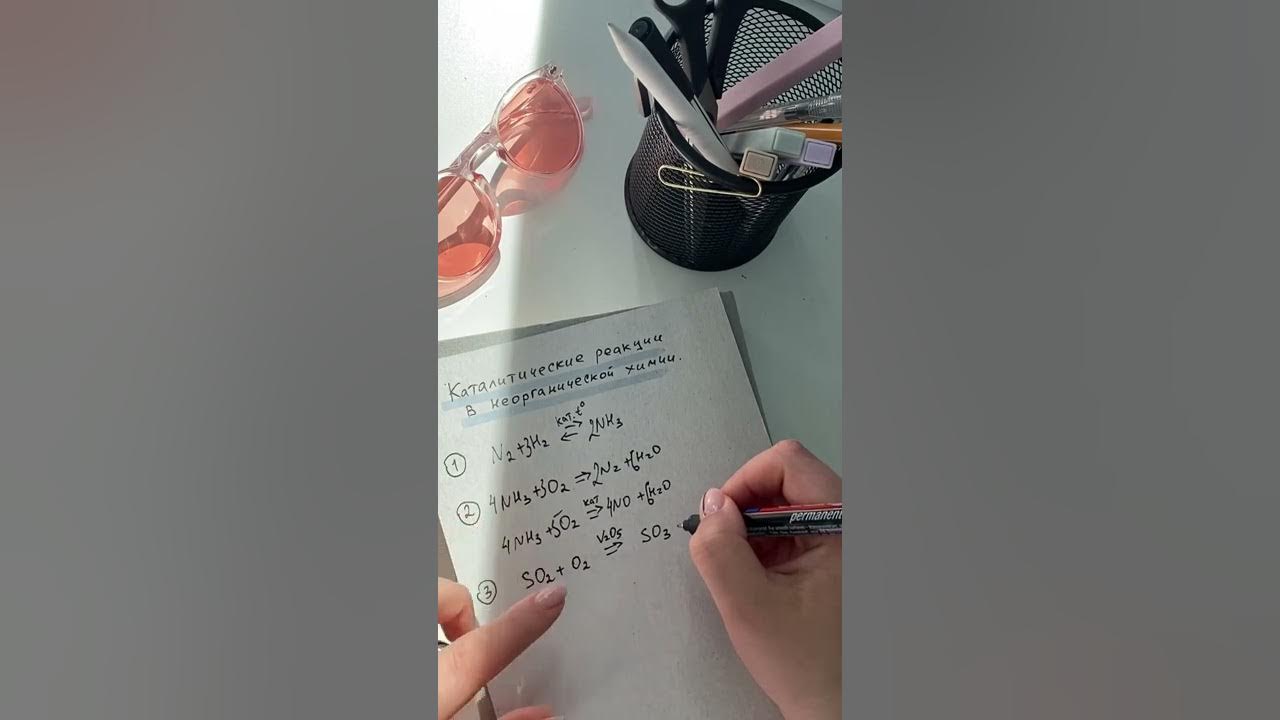 Каталитические реакции
в неорганической химии.
кат. t°
① N₂+3H₂ ⇄ 2NH₃
② 4NH₃+3O₂ ⇒ 2N₂+6H₂O
кат
4NH₃+5O₂ ⇒ 4NO+6H₂O
V₂O₅
③ SO₂+O₂ ⇒ SO₃
permanent